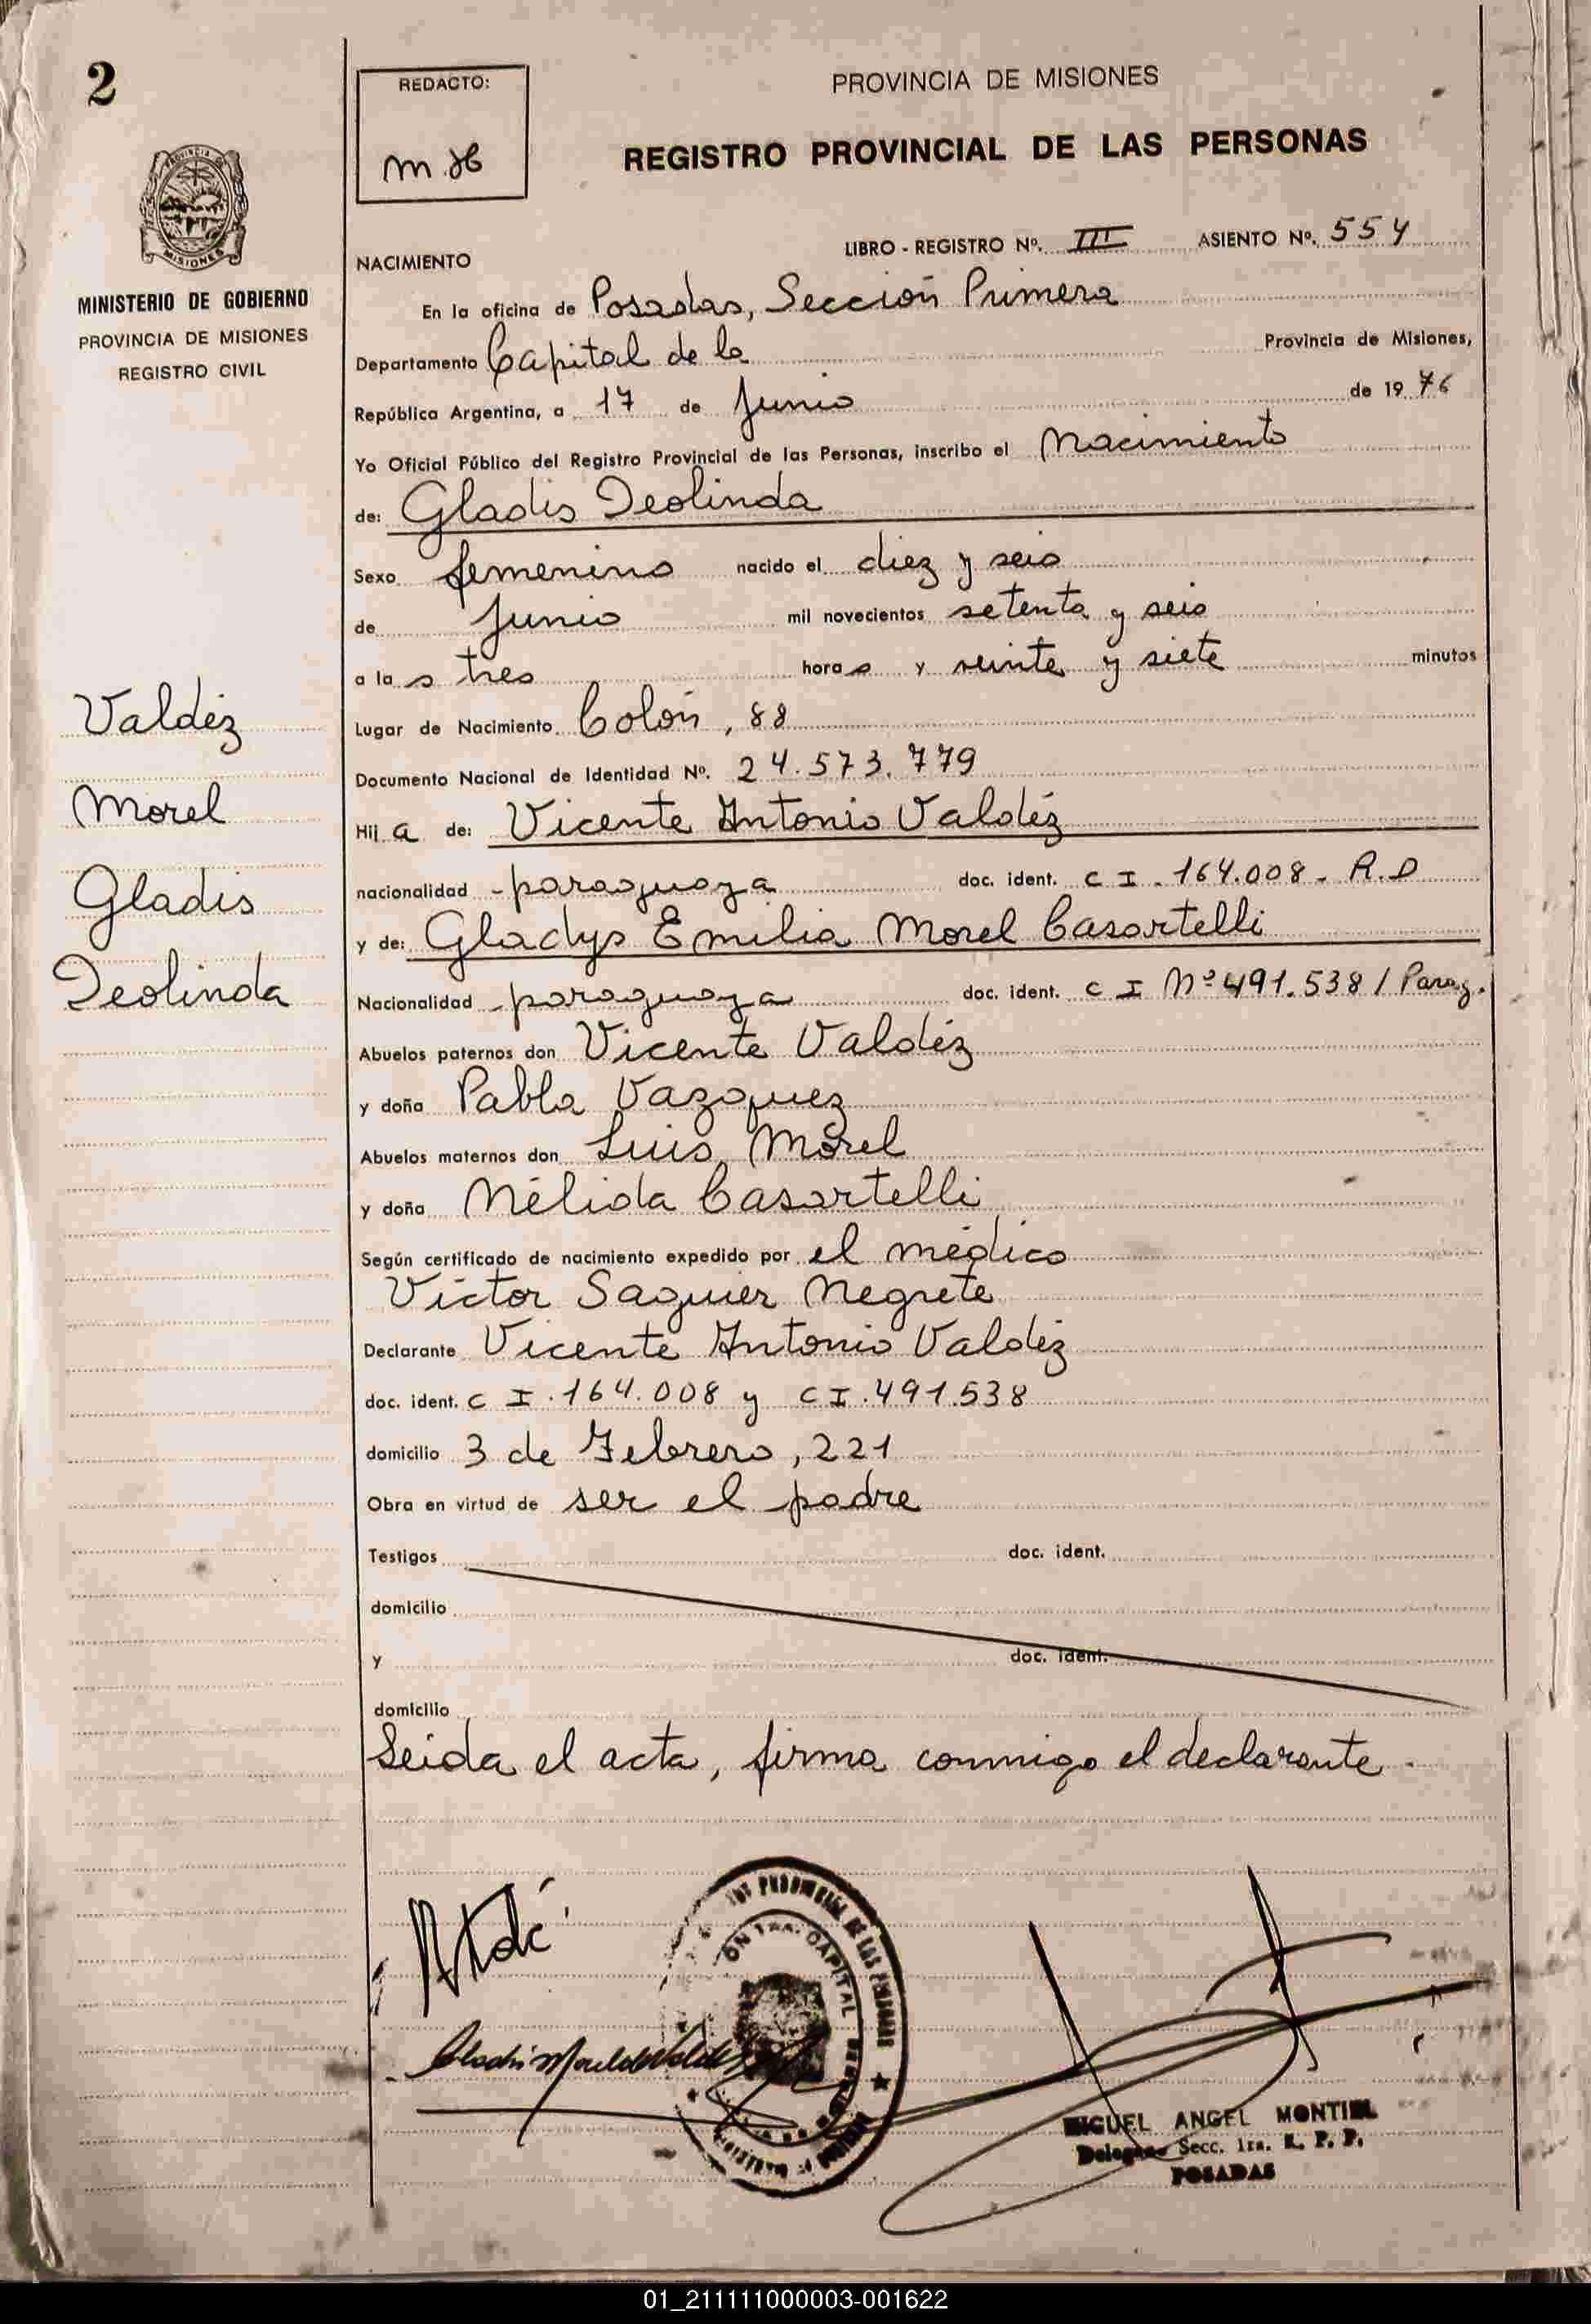 2
REDACTO:
m.H
PROVINCIA DE MISIONES
REGISTRO PROVINCIAL DE LAS PERSONAS
MINISTERIO DE GOBIERNO
PROVINCIA DE MISIONES
REGISTRO CIVIL
LIBRO - REGISTRO Nº. III ASIENTO Nº. 554
NACIMIENTO
En la oficina de Posadas, Sección Primera
Departamento Capital de la Provincia de Misiones,
República Argentina, a 17 de Junio de 1976
Yo Oficial Público del Registro Provincial de las Personas, inscribo el Nacimiento
de: Gladis Deolinda
Sexo femenino nacido el diez y seis
de Junio mil novecientos setenta y seis
a las tres horas y veinte y siete minutos
Lugar de Nacimiento Colón, 88
Documento Nacional de Identidad Nº. 24.573.779
Hija de: Vicente Antonio Valdéz
nacionalidad -paraguaya doc. ident. C I. 164.008 - R.P
y de: Gladys Emilia Morel Casartelli
Nacionalidad -paraguaya doc. ident. C I Nº 491.538 / Parag.
Abuelos paternos don Vicente Valdéz
y doña Pabla Vazquez
Abuelos maternos don Luis Morel
y doña Nélida Casartelli
Según certificado de nacimiento expedido por el médico
Víctor Saguier Negrete
Declarante Vicente Antonio Valdéz
doc. ident. C I. 164.008 y C I. 491.538
domicilio 3 de Febrero, 221
Obra en virtud de ser el padre
Testigos doc. ident.
domicilio
y doc. ident.
domicilio
Leida el acta, firma conmigo el declarante.
Valdéz
Morel
Gladis
Deolinda
CAPITAL
MIGUEL ANGEL MONTIEL
Delegado Secc. 1ra. R. P. P.
POSADAS
01_211111000003-001622